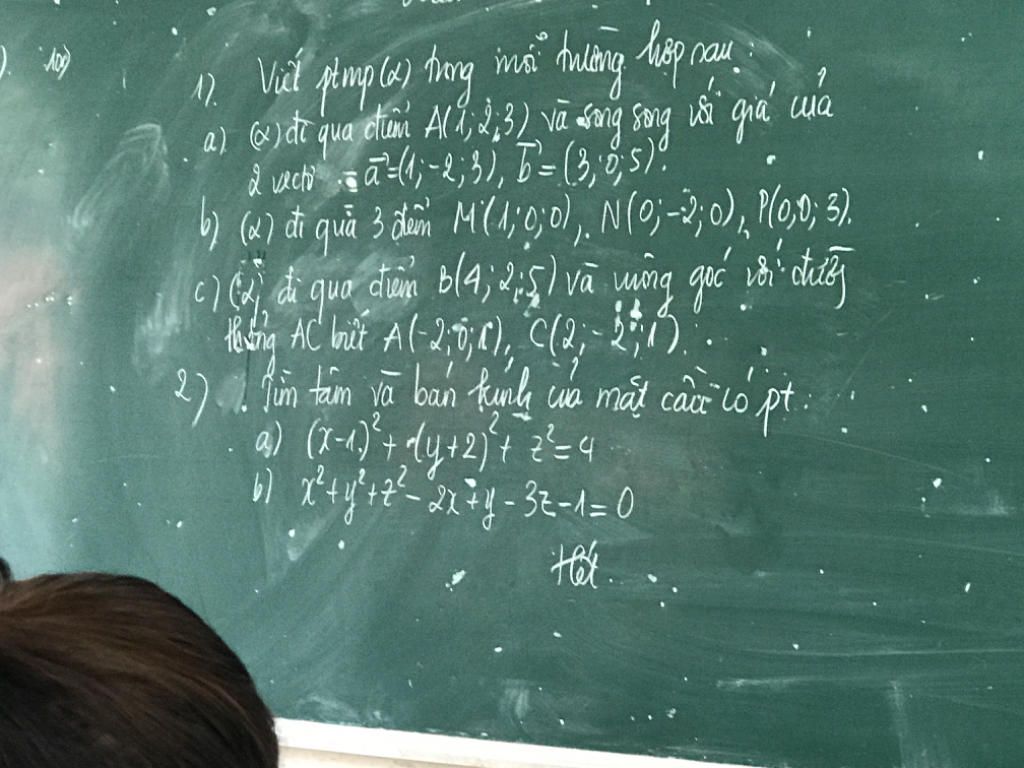 1). Viết ptmp (α) trong mỗi trường hợp sau:
a) (α) đi qua điểm A(1; 2; 3) và song song với giá của
2 vectơ a⃗ = (1; -2; 3), b⃗ = (3; 0; 5).
b) (α) đi qua 3 điểm M(1; 0; 0), N(0; -2; 0), P(0; 0; 3).
c) (α) đi qua điểm B(4; 2; 5) và vuông góc với đường
thẳng AC biết A(-2; 0; 1), C(2; -2; 1).
2) Tìm tâm và bán kính của mặt cầu có pt:
a) (x-1)² + (y+2)² + z² = 4
b) x² + y² + z² - 2x + y - 3z - 1 = 0
Hết.